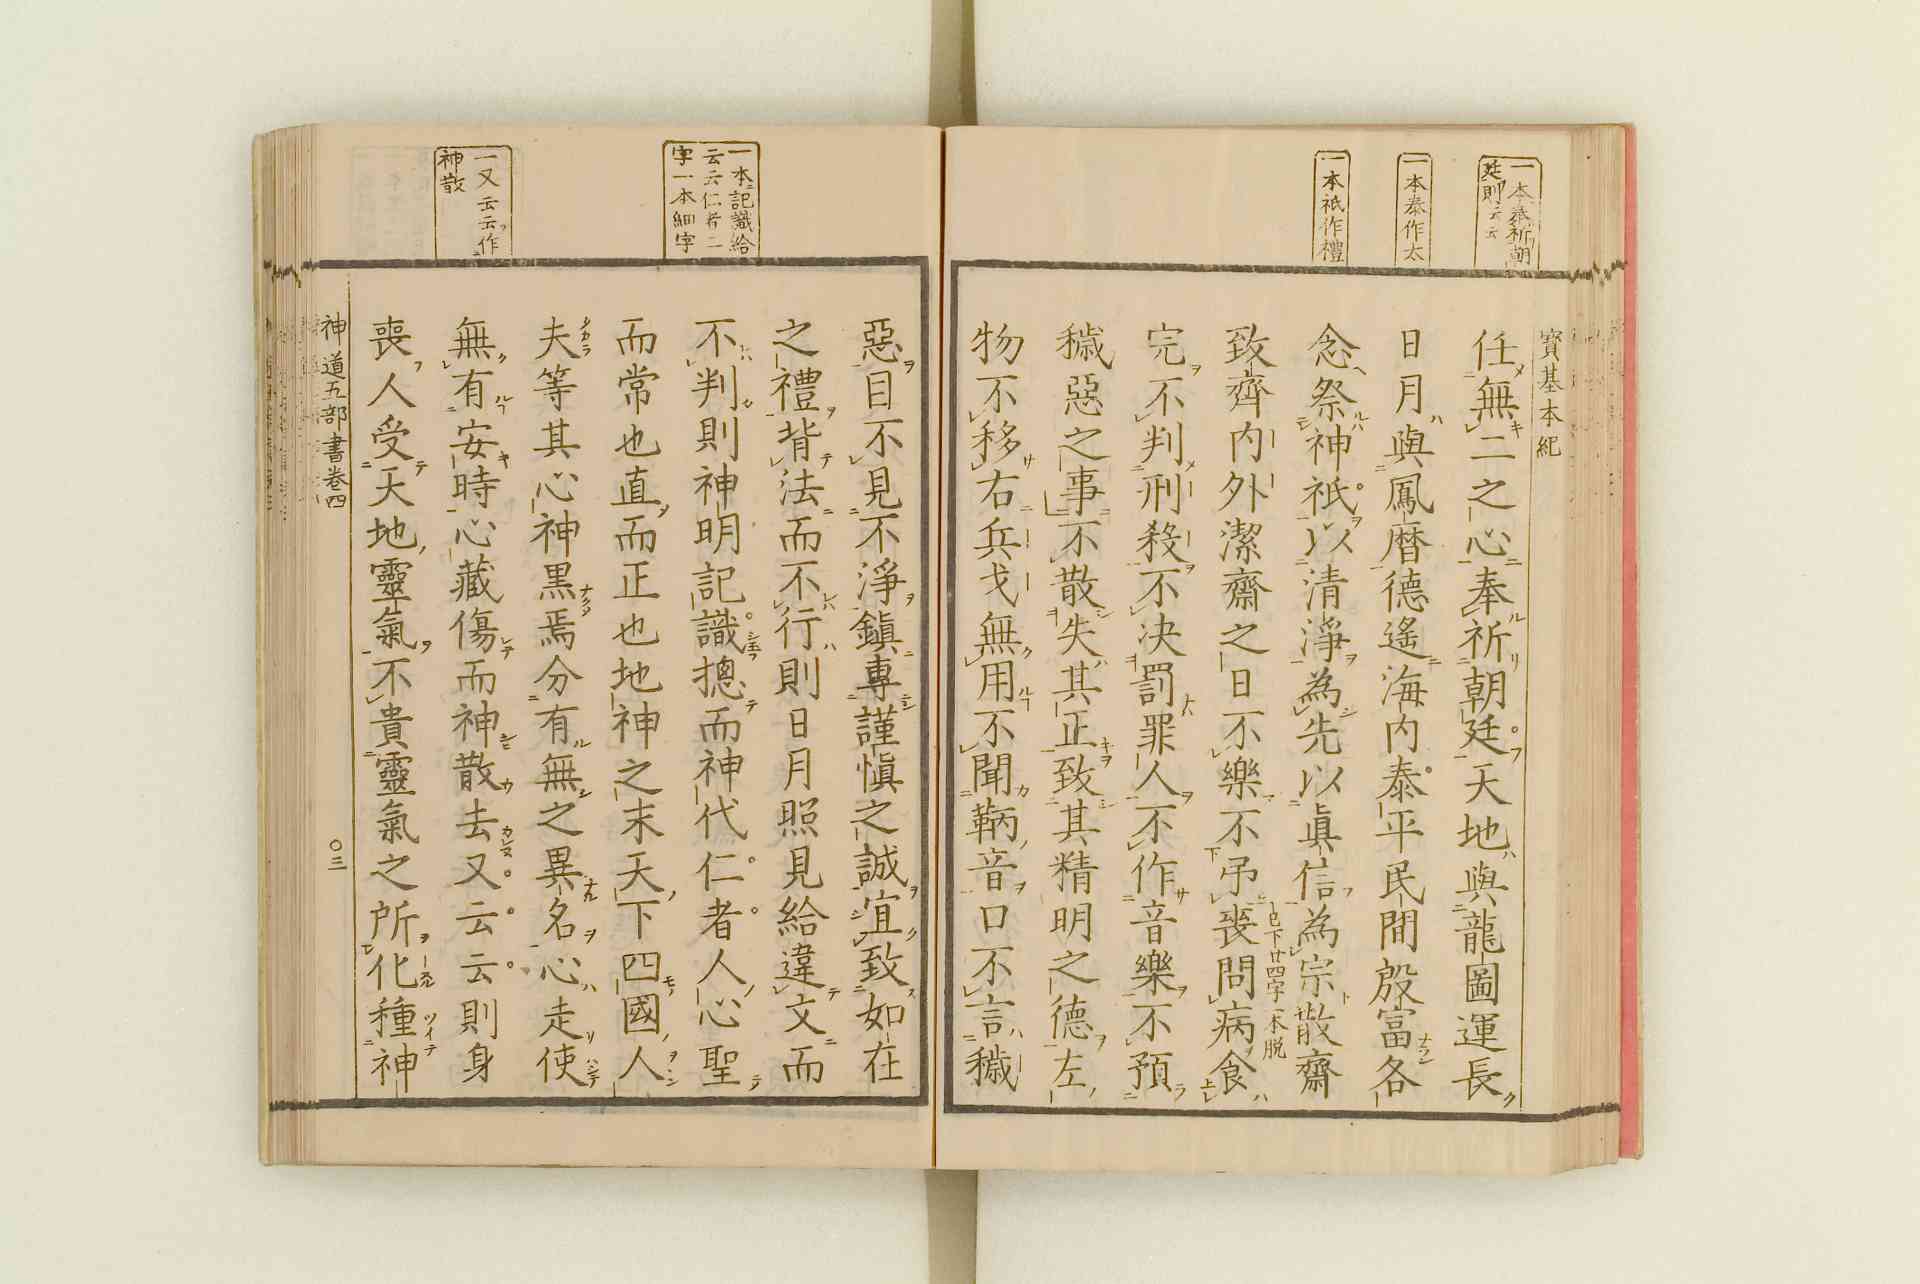 寳基本紀
一本奉祈朝
廷則云云
一本泰作太
一本祇作禮
任無二之心奉祈朝廷天地與龍圖運長
日月與鳳暦德遙海内泰平民間殷富各
念祭神祇以清淨為先以眞信為宗散齋
致齊内外潔齋之日不樂不弔喪問病食
已下廿四字一本脱
完不判刑殺不决罰罪人不作音樂不預
穢惡之事不散失其正致其精明之德左
物不移右兵戈無用不聞鞆音口不言穢
一本記識給
云云仁者二
字一本細字
一又云云作
神散
惡目不見不淨鎭專謹愼之誠宜致如在
之禮背法而不行則日月照見給違文而
不判則神明記識摠而神代仁者人心聖
而常也直而正也地神之末天下四國人
夫等其心神黒焉分有無之異名心走使
無有安時心藏傷而神散去又云云則身
喪人受天地靈氣不貴靈氣之所化種神
神道五部書卷四
〇三